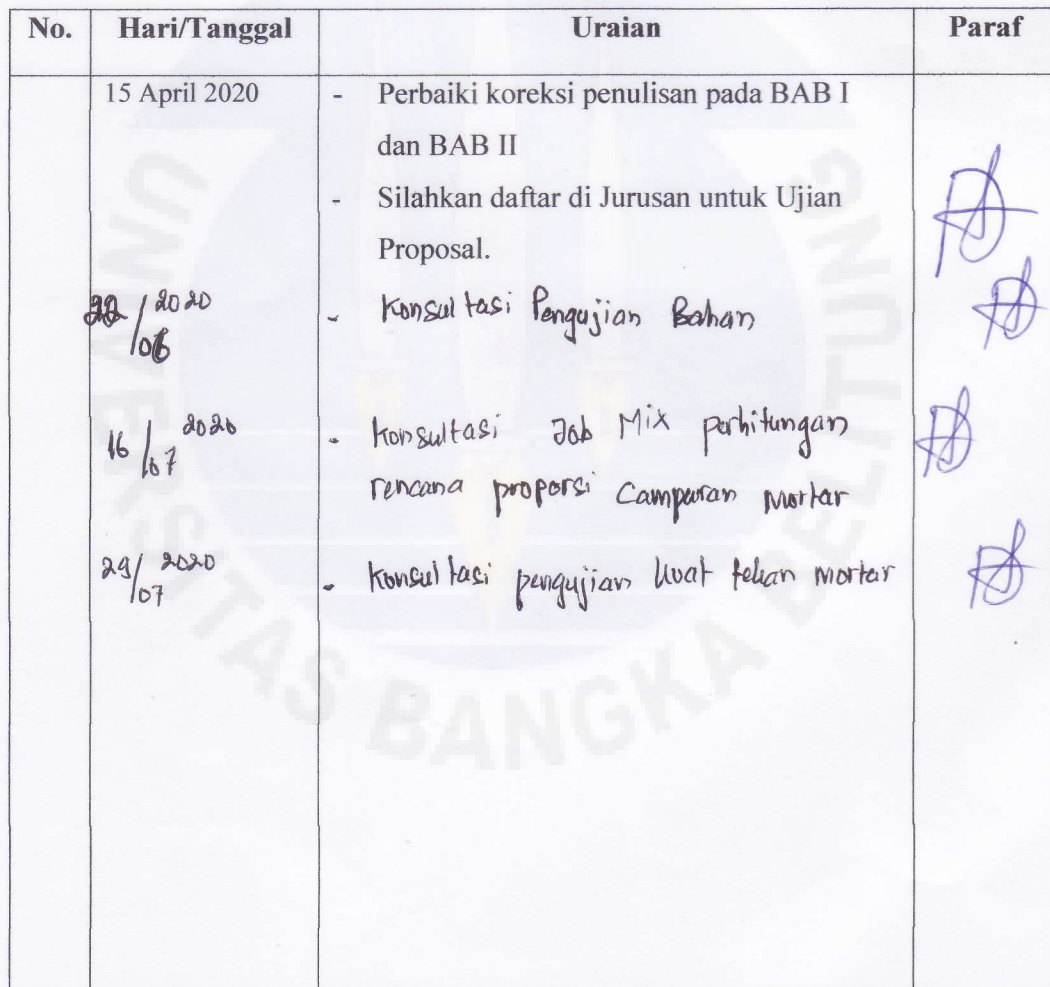 No. Hari/Tanggal Uraian Paraf
15 April 2020 - Perbaiki koreksi penulisan pada BAB I
dan BAB II
- Silahkan daftar di Jurusan untuk Ujian
Proposal.
22/06 2020 - Konsultasi Pengujian Bahan
16/07 2020 - Konsultasi Job Mix perhitungan
rencana proporsi Campuran Mortar
29/07 2020 - Konsultasi pengujian kuat tekan mortar
UNIVERSITAS BANGKA BELITUNG